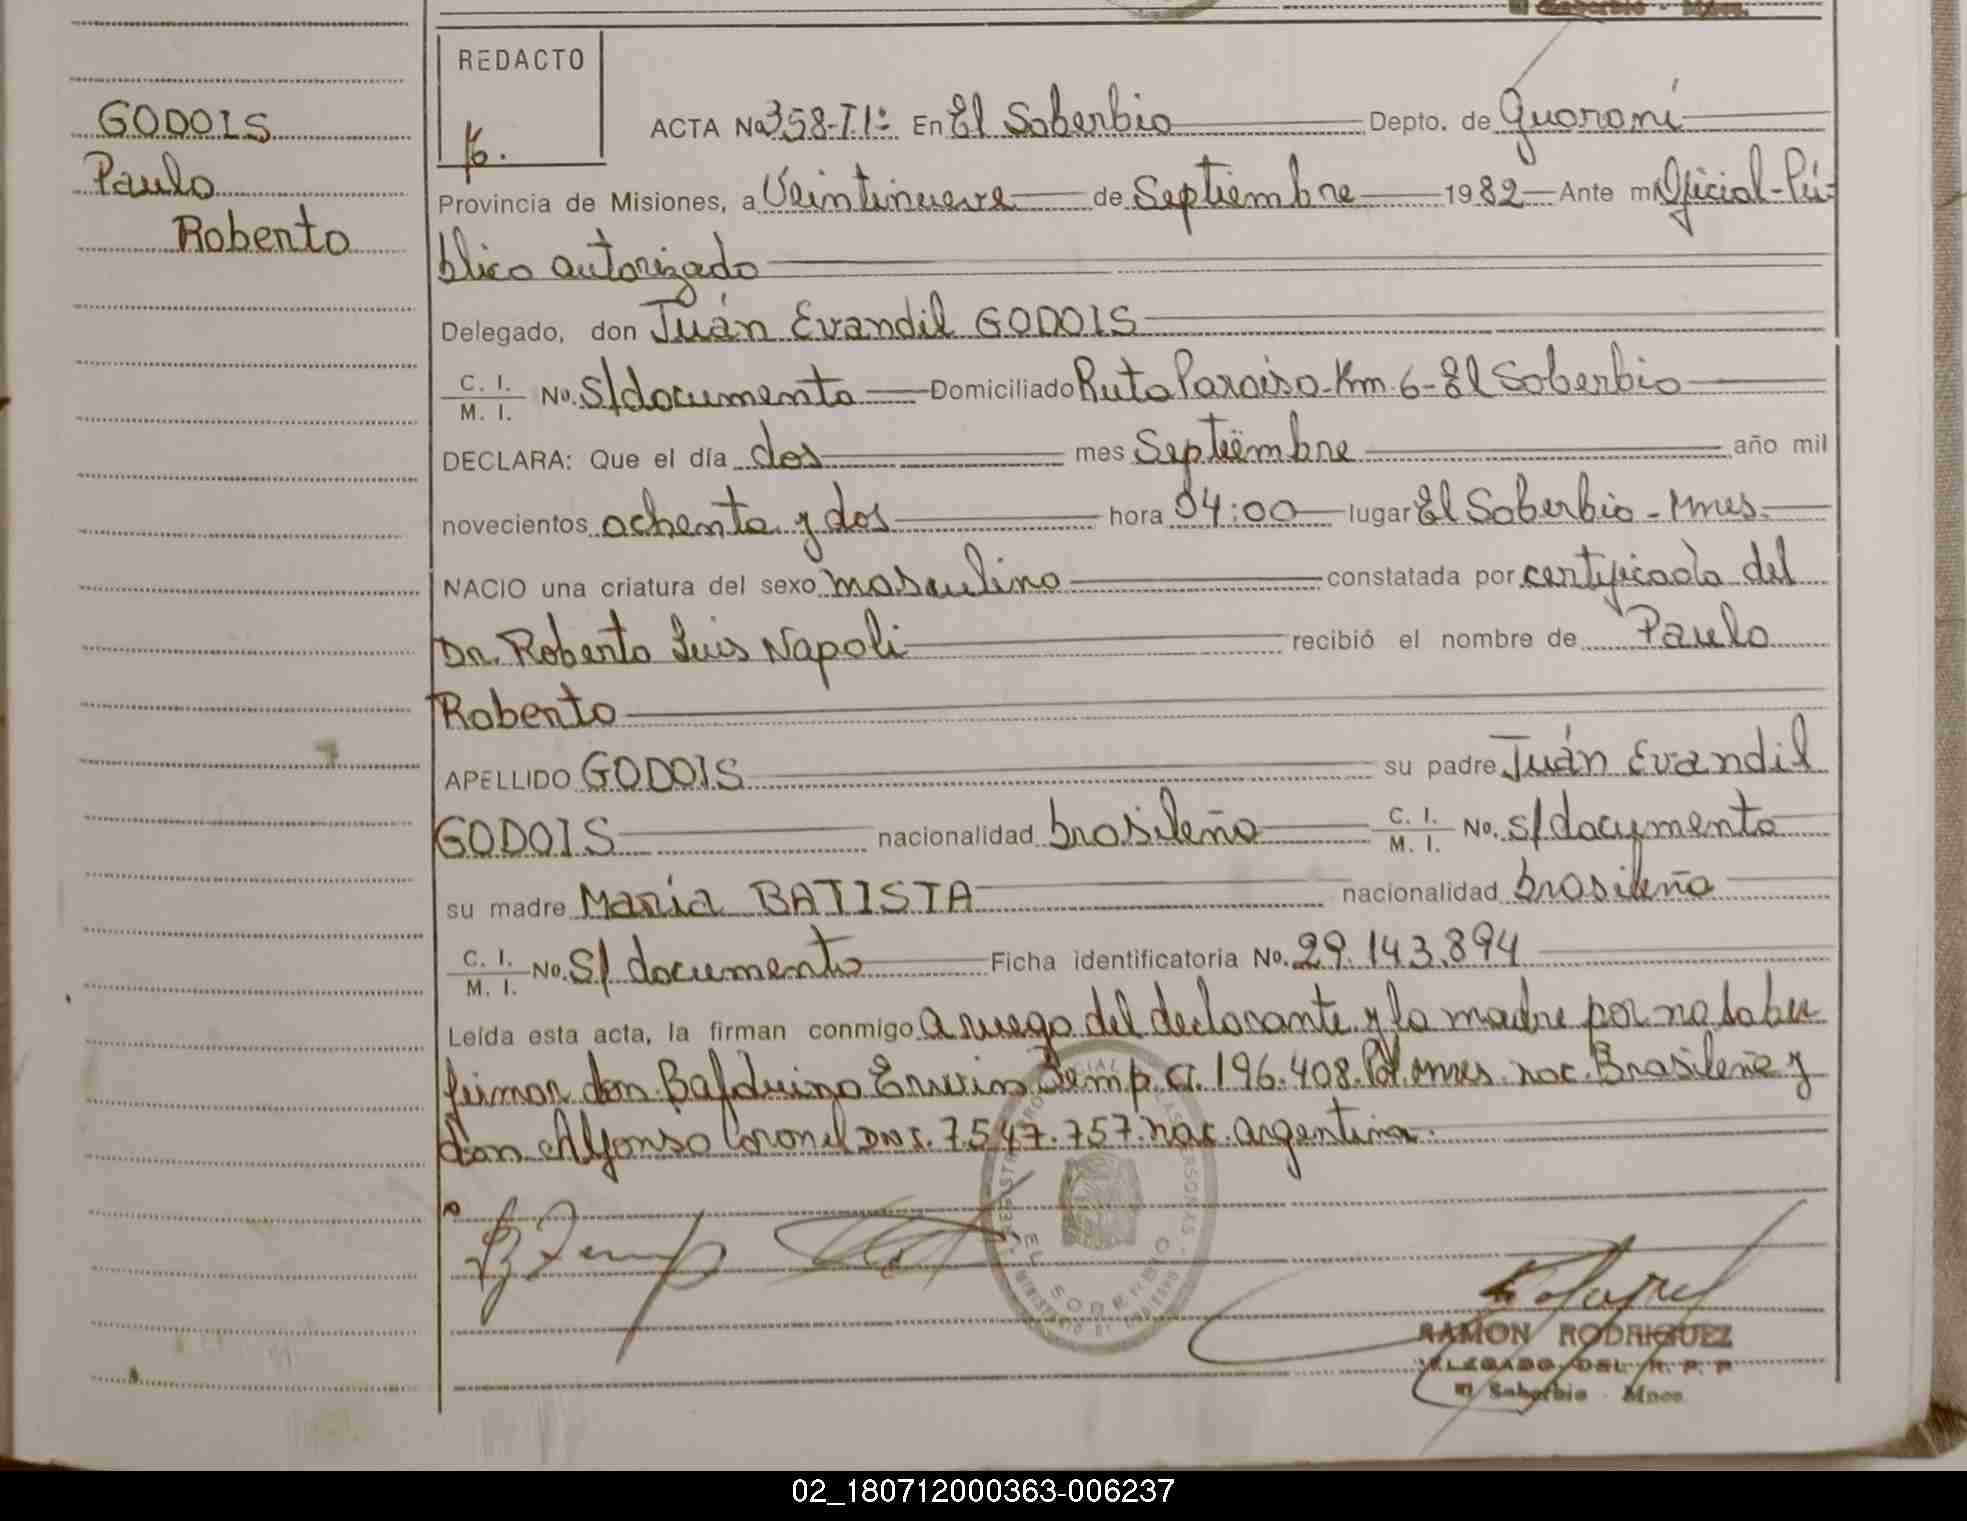 El Soberbio - Mnes.
REDACTO
GODOIS
Paulo
Roberto
ACTA No 358-T1º En El Soberbio Depto. de Guaraní
Provincia de Misiones, a Veintinueve de Septiembre 1982 Ante mi Oficial-Pú-
blico autorizado
Delegado, don Juán Evandil GODOIS
C. I. / M. I. No. S/documento Domiciliado Ruta Paraiso-Km. 6-El Soberbio
DECLARA: Que el día dos mes Septiembre año mil
novecientos ochenta y dos hora 04:00 lugar El Soberbio - Mnes-
NACIO una criatura del sexo masculino constatada por certificado del
Dr. Roberto Luis Napoli recibió el nombre de Paulo
Roberto
APELLIDO GODOIS su padre Juán Evandil
GODOIS nacionalidad brasileña C. I. / M. I. No. s/documento
su madre María BATISTA nacionalidad brasileña
C. I. / M. I. No. S/ documento Ficha identificatoria No. 29.143.894
Leída esta acta, la firman conmigo a ruego del declarante y la madre por no saber
firmar don Balduino Erwino Temp. CI. 196.408. Pol. mnes. nac. Brasileña y
don Alfonso Coronel DNI. 7.547.757. nac. argentina.
B Temp
EL SOBERBIO
RAMON RODRIGUEZ
DELEGADO DEL R. P. P
El Soberbio - Mnes
02_180712000363-006237